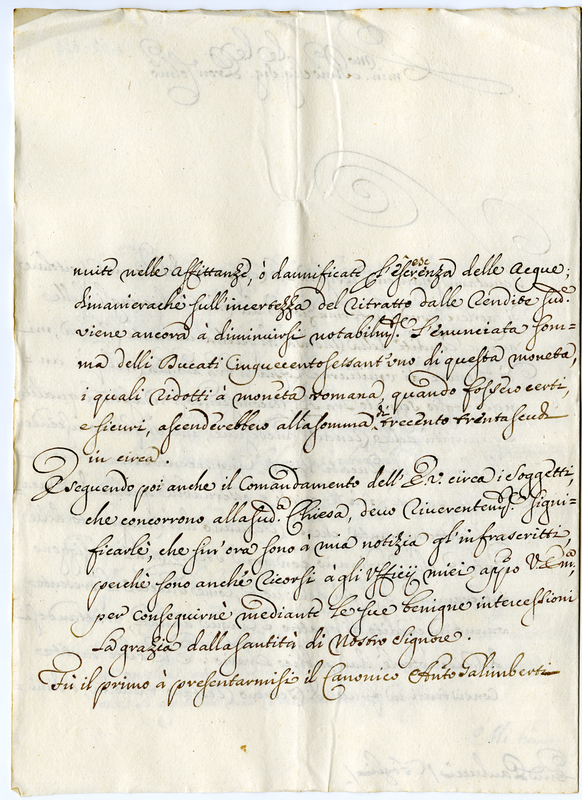 nuite nelle affittanze, ò dannificate p l'escrescenza delle Acque;
dimanierachè sull'incertezza del ritratto dalle rendite sud.e
viene ancora à diminuirsi notabilm.te l'enunciata som-
ma delli Ducati Cinquecentosessant'uno di questa moneta,
i quali ridotti à moneta romana, quando fossero certi,
e sicuri, ascenderebbero alla somma di trecento trenta scudi
in circa.
Eseguendo poi anche il Comandamento dell'E. V. circa i Soggetti,
che concorrono alla sud.a Chiesa, devo riverentem.te signi-
ficarle, che sin'ora sono à mia notizia gl'infrascritti,
perchè sono anche ricorsi à gli Ufficij miei appo V. Em.
per conseguirne mediante le sue benigne intercessioni
la grazia dalla Santità di Nostro Signore.
Fù il primo à presentarmisi il Canonico Ant.o Salimberti